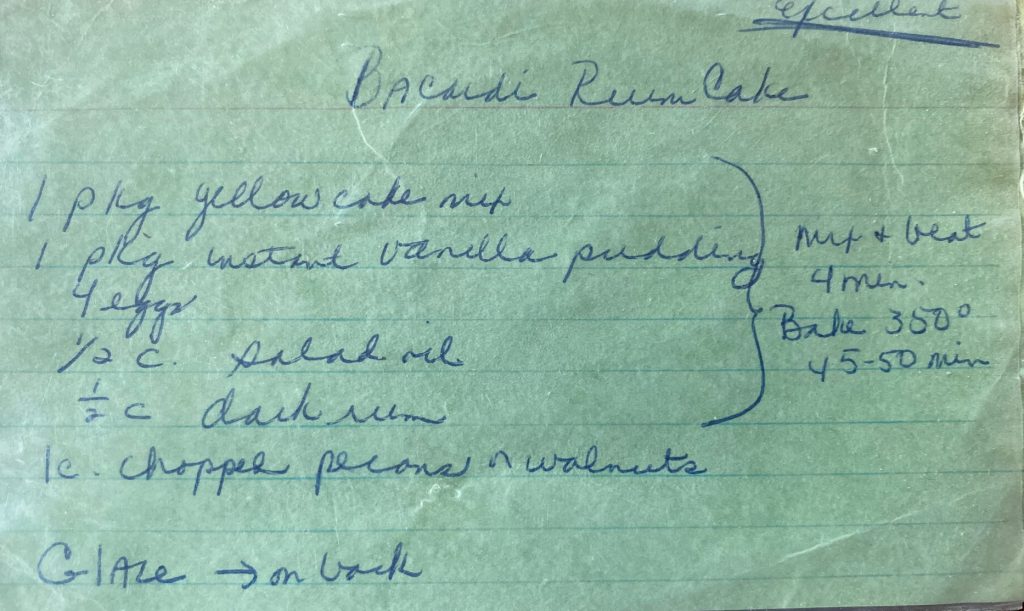 Excellent
Bacardi Rum Cake
1 pkg yellow cake mix
1 pkg instant vanilla pudding
4 eggs
1/2 c. salad oil
1/2 c dark rum
mix + beat
4 min.
Bake 350°
45-50 min
1c. chopped pecans or walnuts
Glaze → on back